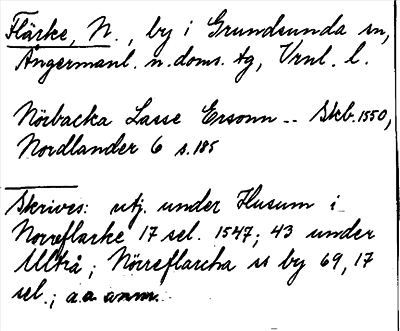 Flärke, N., by i Grundsunda sn,
Ångermanl. n. doms. tg, Vrnl. l.
Nörbacka Lasse Ersonn -- Skb. 1550,
Nordlander 6 s. 185
Skrives: utj. under Husum i
Norreflarke 17 sel. 1547; 43 under
Ultrå; Nörreflarcha ss by 69, 17
sel.; a.a. anm.